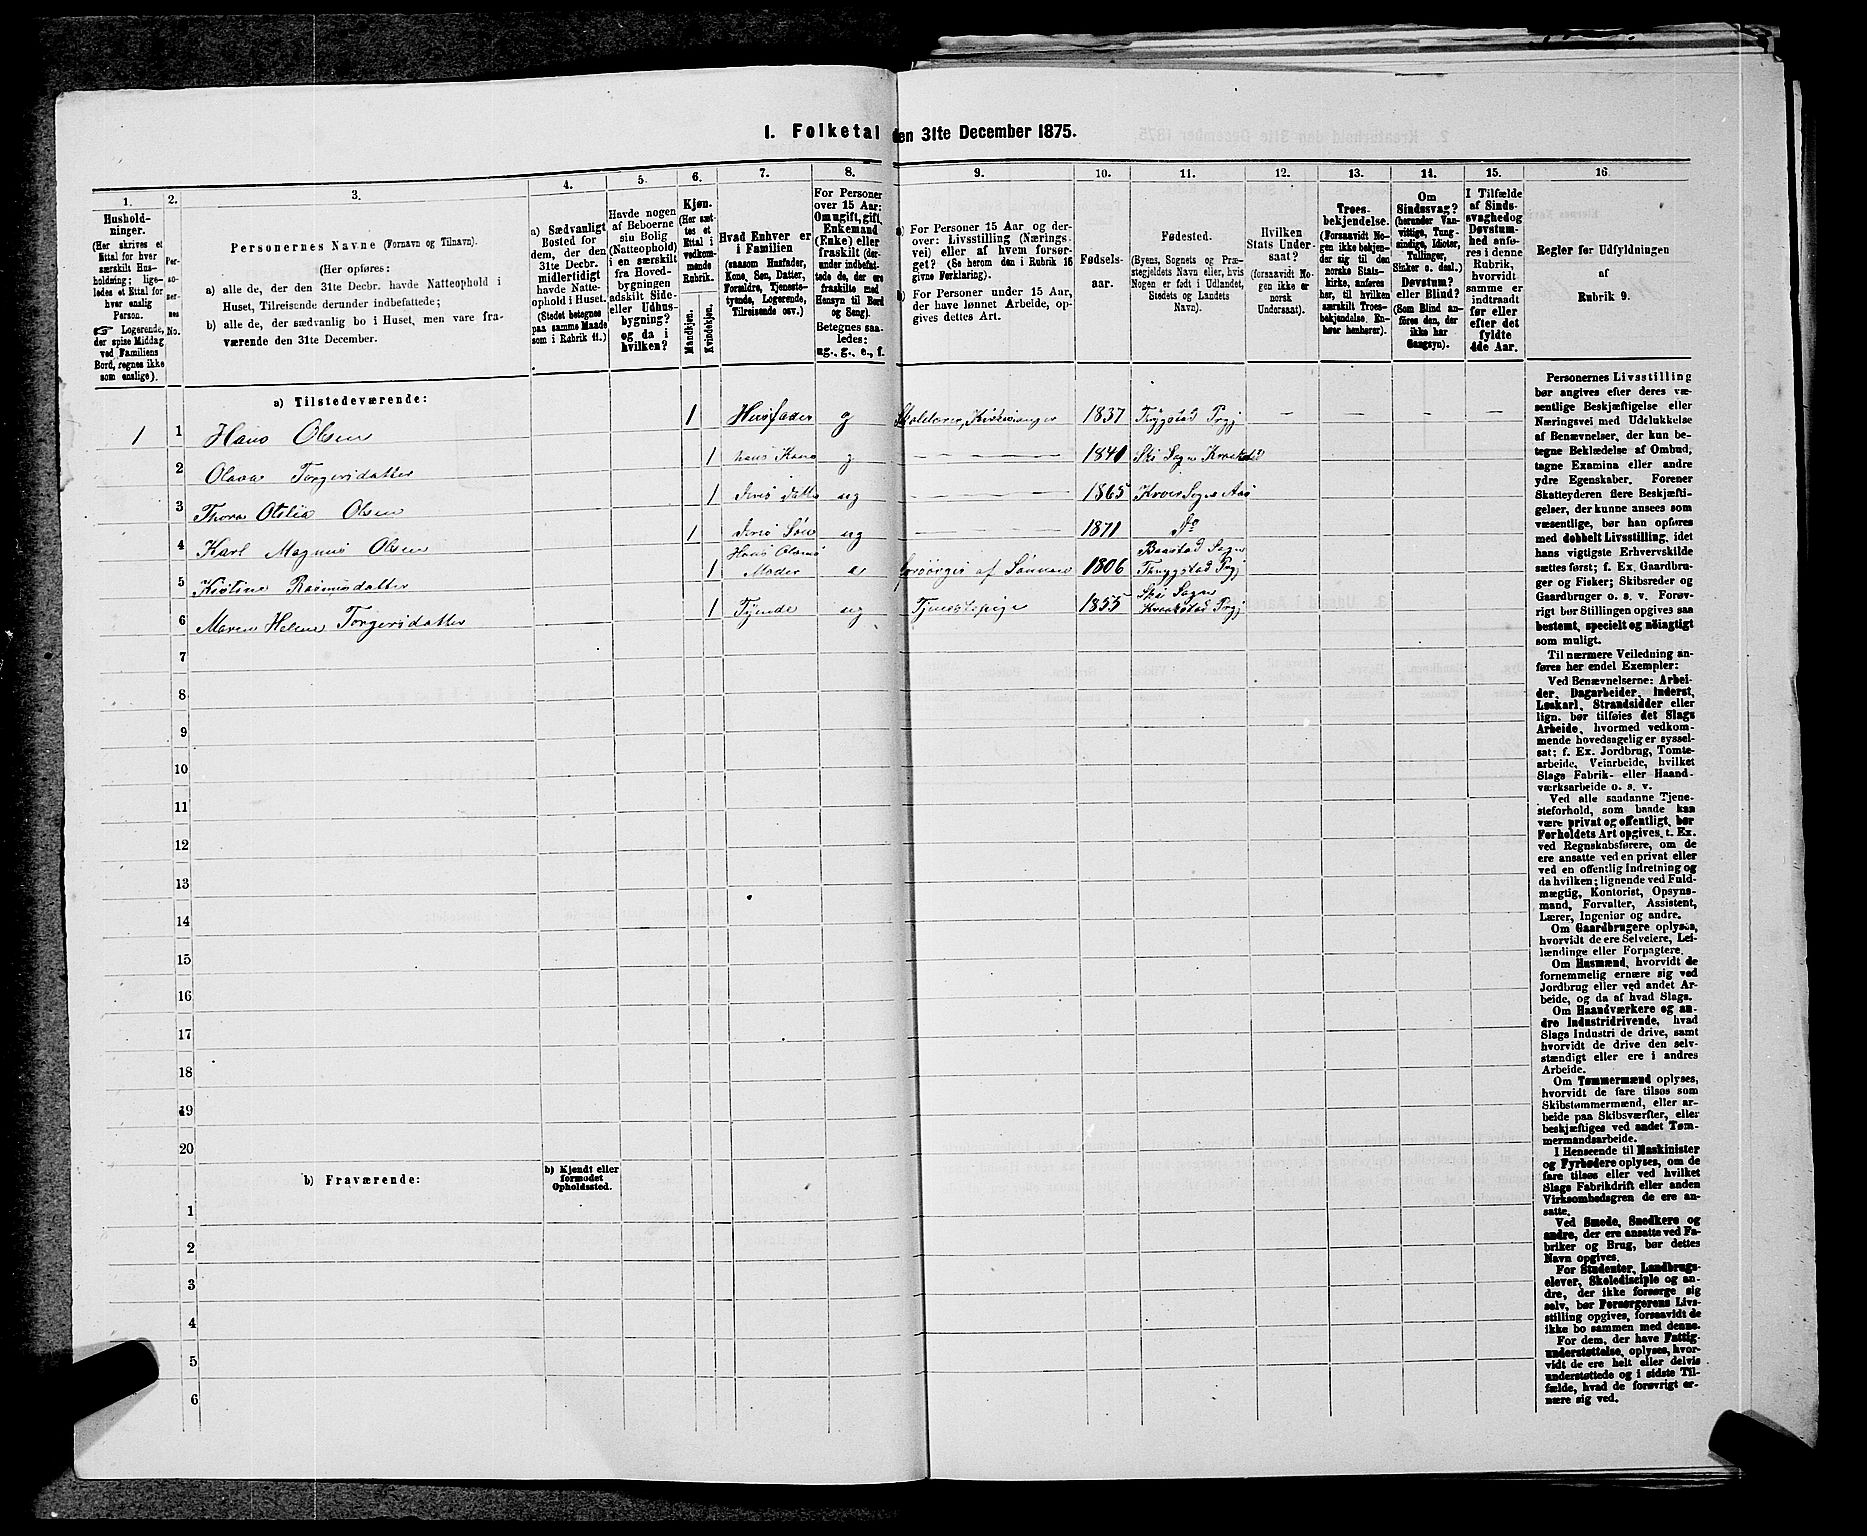 1. Folketal den 31te December 1875.
1.
Hushold-
ninger.
(Her skrives et
Ettal for hver
særskilt Hus-
holdning; lige-
ledes et Ettal for
hver enslig
Person.
Logerende,
der spise Middag
ved Familiens
Bord, regnes ikke
som enslige).
2.
Per-
so-
ner-
nes
No.
3.
Personernes Navne (Fornavn og Tilnavn).
(Her opføres:
a) alle de, der den 31te Decbr. havde Natteophold i
Huset, Tilreisende derunder indbefattede;
b) alle de, der sædvanlig bo i Huset, men vare fra-
værende den 31te December.
4.
a) Sædvanligt
Bosted for
dem, der den
31te Decbr.
midlertidigt
havde Natte-
ophold i Huset.
(Stedet betegnes
paa samme Maade
som i Rubrik 11.)
5.
Havde nogen
af Beboerne
sin Bolig
(Natteophold)
i en særskilt
fra Hoved-
bygningen
adskilt Side-
eller Udhus-
bygning?
og da i
hvilken?
6.
Kjøn.
(Her sæt-
tes et
Ettal i
vedkom-
mende
Rubrik.
Mandkjøn.
Kvindekjøn.
7.
Hvad Enhver er
i Familien
(saasom Husfader,
Kone, Søn, Datter,
Forældre, Tjeneste-
tyende, Logerende,
Tilreisende osv.)
8.
For Personer
over 15 Aar:
Om ugift, gift,
Enkemand
(Enke) eller
fraskilt (der-
under indbefat-
tede de, der ere
fraskilte med
Hensyn til Bord
og Seng).
Betegnes saa-
ledes:
ug., g., e., f.
9.
a) For Personer 15 Aar og der-
over: Livsstilling (Nærings-
vei) eller af hvem forsør-
get? (Se herom den i Rubrik 16
givne Førklaring).
b) For Personer under 15 Aar,
der have lønnet Arbeide, op-
gives dettes Art.
10.
Fødsels-
aar.
11.
Fødested.
(Byens, Sognets og Præ-
stegjeldets Navn eller, hvis
Nogen er født i Udlandet,
Stedets og Landets
Navn).
12.
Hvilken
Stats Under-
saat?
(forsaavidt No-
gen ikke er
norsk
Undersaat).
13.
Troes-
bekjendelse.
(Forsaavidt No-
gen ikke bekjen-
der sig til den
norske Stats-
kirke, anføres
her, til hvilken
særskilt Troes-
bekjendelse, En-
hver henhører).
14.
Om
Sindssvag?
(herunder Van-
vittige, Tung-
sindige, Idioter,
Tullinger,
Sinker o. desl.)
Døvstum?
eller Blind?
(Som Blind an-
føres den, der
ikke har
Gangsyn).
15.
I Tilfælde
af Sinds-
svaghed og
Døvstum-
hed anfø-
res i denne
Rubrik,
hvorvidt
samme er
indtraadt
før eller
efter det
fyldte
4de Aar.
16
Regler for Udfyldningen
af
Rubrik 9.
a) Tilstedeværende:
1 1 Hans Olsen 1 Husfader g Skolelærer, Kirkesanger 1837 Trygstad Prgj – – – –
2 Olava Torgersdatter 1 hans Kone g – – – – 1840 Ski Sogn Kraakstad
3 Thora Otilia Olsen 1 deres Datter ug – – – – 1865 Kroer Sogn Aas
4 Karl Magnus Olsen 1 deres Søn ug – – – – 1871 do
5 Kistine Rasmusdatter 1 Hans Olsens
Moder e forsørges af Sønnen 1806 Baastad Sogn
Thrygstad Prgj
6 Maren Helene Torgersdatter 1 Tyende ug Tjenestepige 1855 Ski Sogn
Kraakstad Prgj
7
8
9
10
11
12
13
14
15
16
17
18
19
20
b) Fraværende:
b) Kjendt eller
formodet
Opholdssted.
1
2
3
4
5
6
Personernes Livsstilling
bør angives efter deres væ-
sentlige Beskjæftigelse eller
Næringsvei med Udelukkelse
af Benævnelser, der kun be-
tegne Beklædelse af Ombud,
tagne Examina eller andre
ydre Egenskaber. Forener
Skatteyderen flere Beskjæfti-
gelser, der kunne ansees som
væsentlige, bør han opføres
med dobbelt Livsstilling, idet
hans vigtigste Erhvervskilde
sættes først; f. Ex. Gaardbru-
ger og Fisker; Skibsreder og
Gaardbruger o. s. v. Forøv-
rigt bør Stillingen opgives saa
bestemt, specielt og nøiagtigt
som muligt.
Til nærmere Veiledning an-
føres her endel Exempler:
Ved Benævnelserne: Arbei-
der, Dagarbeider, Inderst,
Løskarl, Strandsidder eller
lign. bør tilføies det Slags
Arbeide, hvormed vedkom-
mende hovedsagelig er syssel-
sat; f. Ex. Jordbrug, Tomte-
arbeide, Veiarbeide, hvilket
Slags Fabrik- eller Haand-
værksarbeide o. s. v.
Ved alle saadanne Tjene-
steforhold, som baade kan
være privat og offentligt, bør
Forholdets Art opgives, t. Ex.
ved Regnskabsførere, om de
ere ansatte ved en privat eller
ved en offentlig Indretning og
da hvilken; lignende ved Fuld-
mægtig, Kontorist, Opsyns-
mand, Forvalter, Assistent,
Lærer, Ingeniør og andre.
Om Gaardbrugere oplyses,
hvorvidt de ere Selveiere, Lei-
lændinge eller Forpagtere.
Om Husmænd, hvorvidt de
fornemmelig ernære sig ved
Jordbrug eller ved andet Ar-
beide, og da af hvad Slags.
Om Haandværkere og an-
dre Industridrivende, hvad
Slags Industri de drive, samt
hvorvidt de drive den selv-
stændigt eller ere i andres
Arbeide.
Om Tømmermænd oplyses,
hvorvidt de fare tilsøs som
Skibstømmermænd, eller ar-
beide paa Skibsværfter, eller
beskjæftiges ved andet Tøm-
mermandsarbeide.
I Henseende til Maskinister
og Fyrbødere oplyses, om de
fare tilsøs eller ved hvilket
Slags Fabrikdrift eller anden
Virksomhedsgren de ere an-
satte.
Ved Smede, Snedkere og
andre, der ere ansatte ved Fa-
briker og Brug, bør dettes
Navn opgives.
For Studenter, Landbrugs-
elever, Skoledisciple og an-
dre, der ikke forsørge sig
selv, bør Forsørgerens Livs-
stilling opgives, forsaavidt de
ikke bo sammen med denne.
For dem, der have Fattig-
understøttelse, oplyses, hvor-
vidt de ere helt eller delvis
understøttede og i sidste Til-
fælde, hvad de forøvrigt er-
nære sig ved.